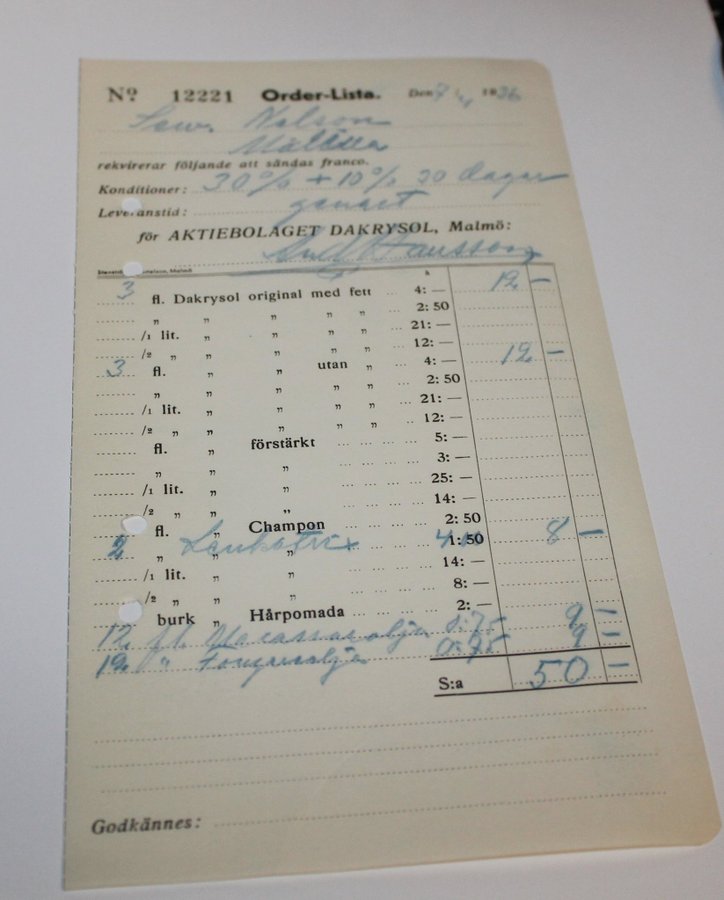 Nº 12221 Order-Lista. Den 7/4 1936
Nelson
rekvirerar följande att sändas franco.
Konditioner: 30% + 10% 30 dagar
Leveranstid: genast
för AKTIEBOLAGET DAKRYSOL, Malmö:
Hansson
à
3 fl. Dakrysol original med fett ... 4: — 12. —
„ „ „ „ „ ... 2: 50
/1 lit. „ „ „ „ ... 21: —
/2 „ „ „ „ „ ... 12: —
3 fl. „ „ utan „ ... 4: — 12 —
„ „ „ „ „ ... 2: 50
/1 lit. „ „ „ „ ... 21: —
/2 „ „ „ „ „ .. 12: —
fl. „ förstärkt ... ... ... 5: —
„ „ „ ... ... ... 3: —
/1 lit. „ „ ... ... ... 25: —
/2 „ „ „ ... ... ... 14: —
fl. „ Champon ... ... ... 2: 50
2 „ „ „ ... ... ... 1: 50 8 —
/1 lit. „ „ ... ... ... 14: —
/2 „ „ „ ... ... ... 8: —
burk „ Hårpomada ... ... ... 2: —
12 fl. Macassarolja 0:75 9 —
12 „ 0:75 9 —
S:a 50 —
Godkännes: